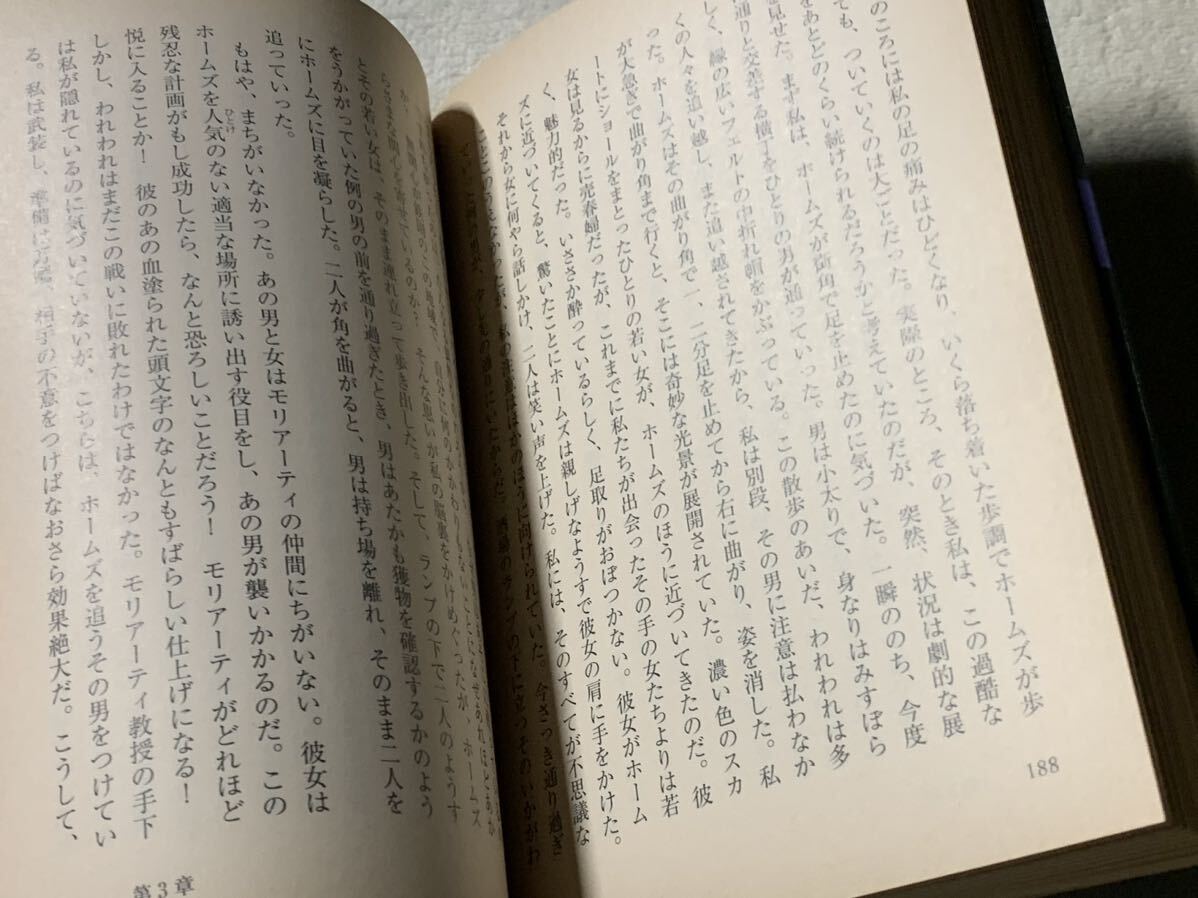 のころには私の足の痛みはひどくなり、いくら落ち着いた歩調でホームズが歩
ても、ついていくのは大ごとだった。実際のところ、そのとき私は、この過酷な
をあとどのくらい続けられるだろうかと考えていたのだが、突然、状況は劇的な展
を見せた。まず私は、ホームズが街角で足を止めたのに気づいた。一瞬ののち、今度
通りと交差する横丁をひとりの男が通っていった。男は小太りで、身なりはみすぼら
しく、縁の広いフェルトの中折れ帽をかぶっている。この散歩のあいだ、われわれは多
くの人々を追い越し、また追い越されてきたから、私は別段、その男に注意は払わなか
った。ホームズはその曲がり角で一、二分足を止めてから右に曲がり、姿を消した。私
が大急ぎで曲がり角まで行くと、そこには奇妙な光景が展開されていた。濃い色のスカ
ートにショールをまとったひとりの若い女が、ホームズのほうに近づいてきたのだ。彼
女は見るからに売春婦だったが、これまでに私たちが出会ったその手の女たちよりは若
く、魅力的だった。いささか酔っているらしく、足取りがおぼつかない。彼女がホーム
ズに近づいてくると、驚いたことにホームズは親しげなようすで彼女の肩に手をかけた。
それから女に何やら話しかけ、二人は笑い声を上げた。私には、そのすべてが不思議な
188
らさまな関心を寄せているのか? そんな思いが私の脳裏をかけめぐったが、ホームズ
とその若い女は、そのまま連れ立って歩き出した。そして、ランプの下で二人のようす
をうかがっていた例の男の前を通り過ぎたとき、男はあたかも獲物を確認するかのよう
にホームズに目を凝らした。二人が角を曲がると、男は持ち場を離れ、そのまま二人を
追っていった。
もはや、まちがいなかった。あの男と女はモリアーティの仲間にちがいない。彼女は
ホームズを人気のない適当な場所に誘い出す役目をし、あの男が襲いかかるのだ。この
ひとけ
残忍な計画がもし成功したら、なんと恐ろしいことだろう! モリアーティがどれほど
悦に入ることか! 彼のあの血塗られた頭文字のなんともすばらしい仕上げになる!
しかし、われわれはまだこの戦いに敗れたわけではなかった。モリアーティ教授の手下
は私が隠れているのに気づいていないが、こちらは、ホームズを追うその男をつけてい
る。私は武装し、準備は万端、相手の不意をつけばなおさら効果絶大だ。こうして、
第3章